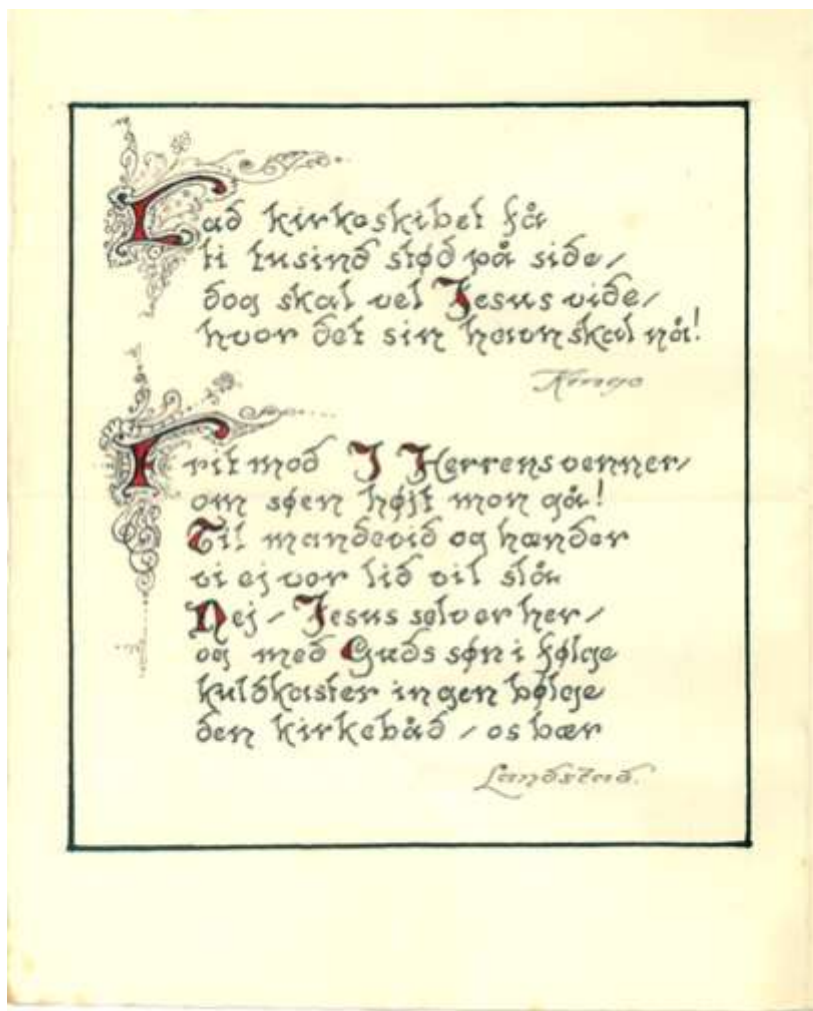 Lad kirkeskibet få
ti tusind stød på side/
dog skal vel Jesus vide/
hvor det sin havn skal nå!
Kingo
Frit mod I Herrens venner/
om søen højt mon gå!
Til mandevid og hænder
vi ej vor lid vil slå.
Nej/ Jesus selv er her/
og med Guds søn i følge
kuldkaster ingen bølge
den kirkebåd/ os bær
Landstad.